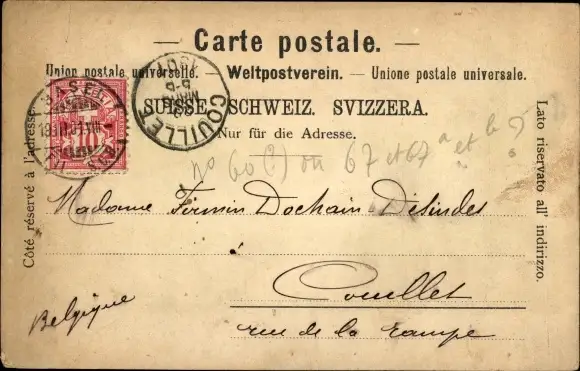 Carte postale.
Union postale universelle. — Weltpostverein. — Unione postale universale.
SUISSE. SCHWEIZ. SVIZZERA.
Nur für die Adresse.
Côté réservé à l'adresse.
Lato riservato all' indirizzo.
BASEL
10
COUILLET
1901
No 60 (?) ou 67 et 67a et
Madame Firmin Dochain Désindes
à
Couillet
rue de la rampe
Belgique